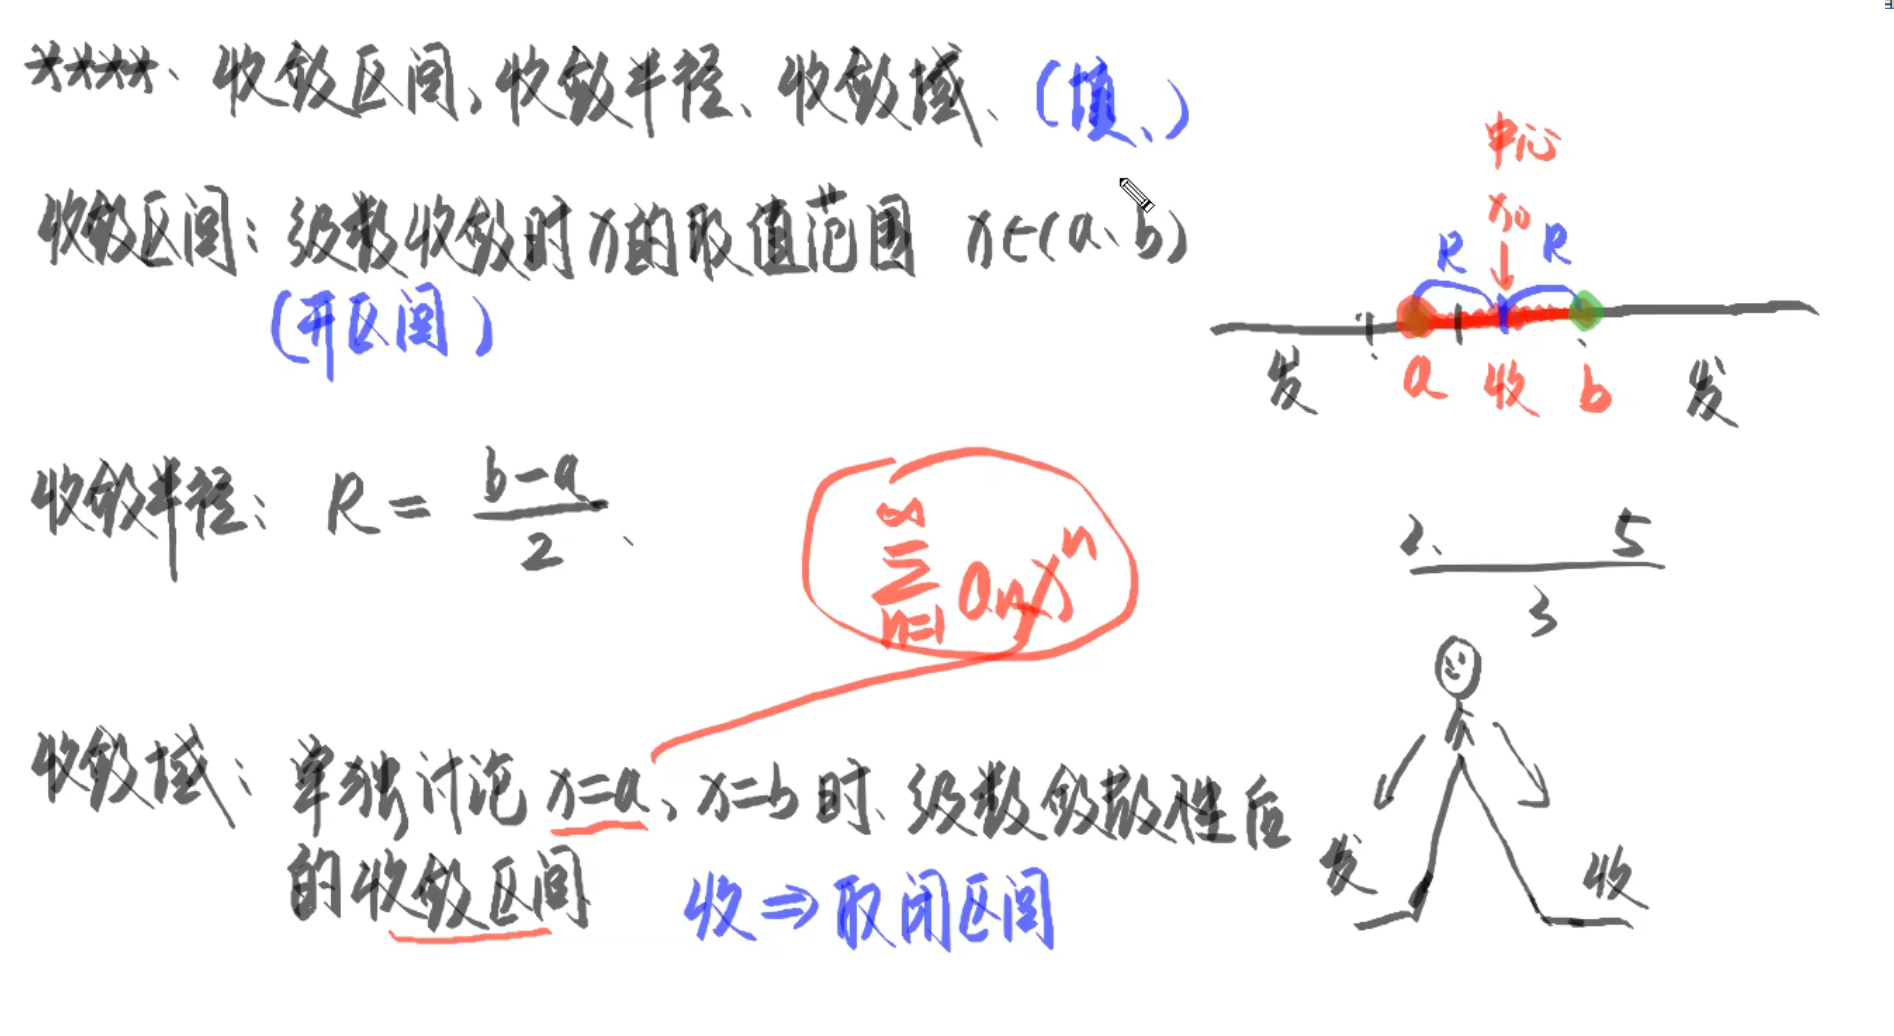 ****、收敛区间、收敛半径、收敛域、(填、)
收敛区间：级数收敛时x的取值范围 x∈(a、b)
(开区间)
中心
x₀
R R
发 a 收 b 发
收敛半径：R = (b-a)/2、
∑_{n=1}^{∞} aₙxⁿ
2、 5
3
收敛域：单独讨论 x=a、x=b 时、级数敛散性后
的收敛区间
收⇒取闭区间
发 收